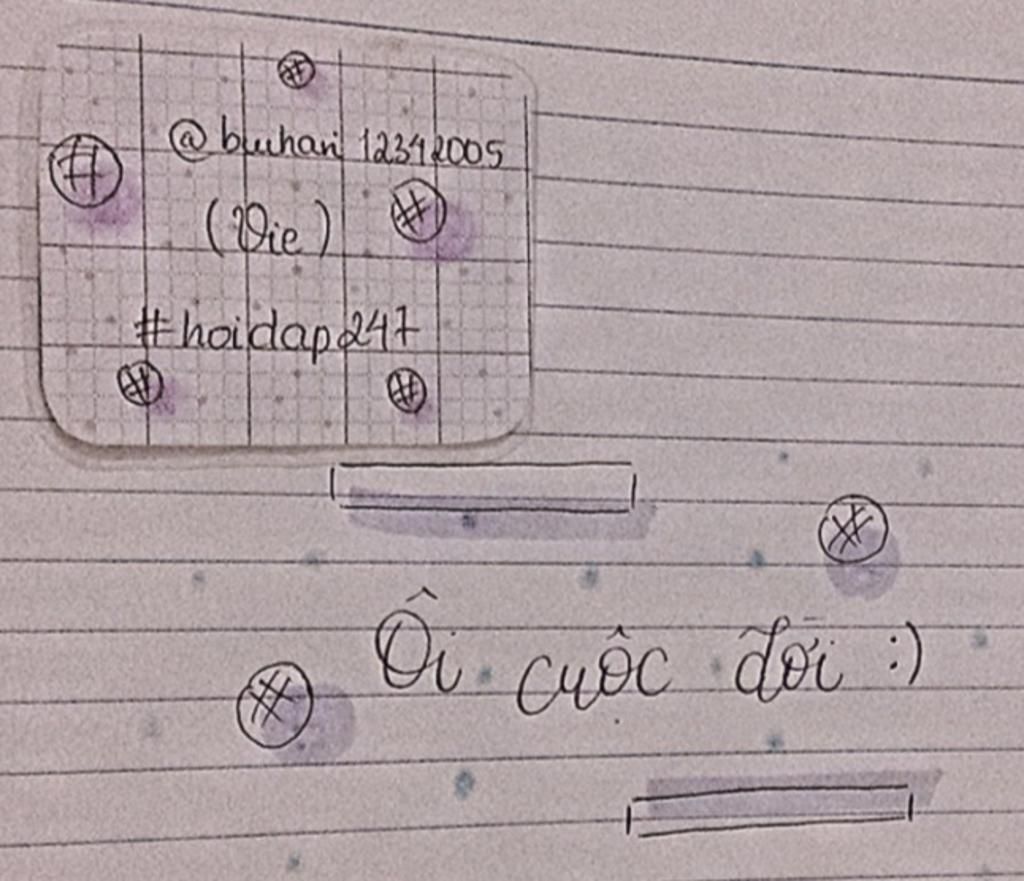 @buihari 12342005
(Vie)
#hoidap247
Ôi cuộc đời :)